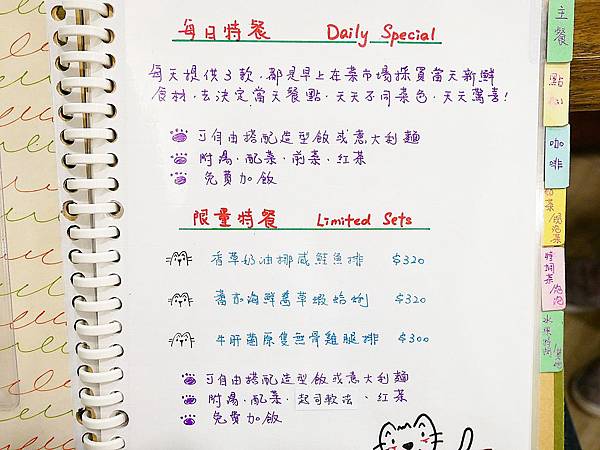 每日特餐 Daily Special
每天提供3款,都是早上在菜市場採買當天新鮮
食材,去決定當天餐點,天天不同菜色,天天驚喜!
可自由搭配造型飯或意大利麵
附湯.配菜.前菜.紅茶
免費加飯
限量特餐 Limited Sets
香草奶油挪威鮭魚排 $320
蕃茄海鮮薑草蝦蛤蜊 $320
牛肝菌原隻無骨雞腿排 $300
可自由搭配造型飯或意大利麵
附湯.配菜.起司軟法、紅茶
免費加飯
主餐
點心
咖啡